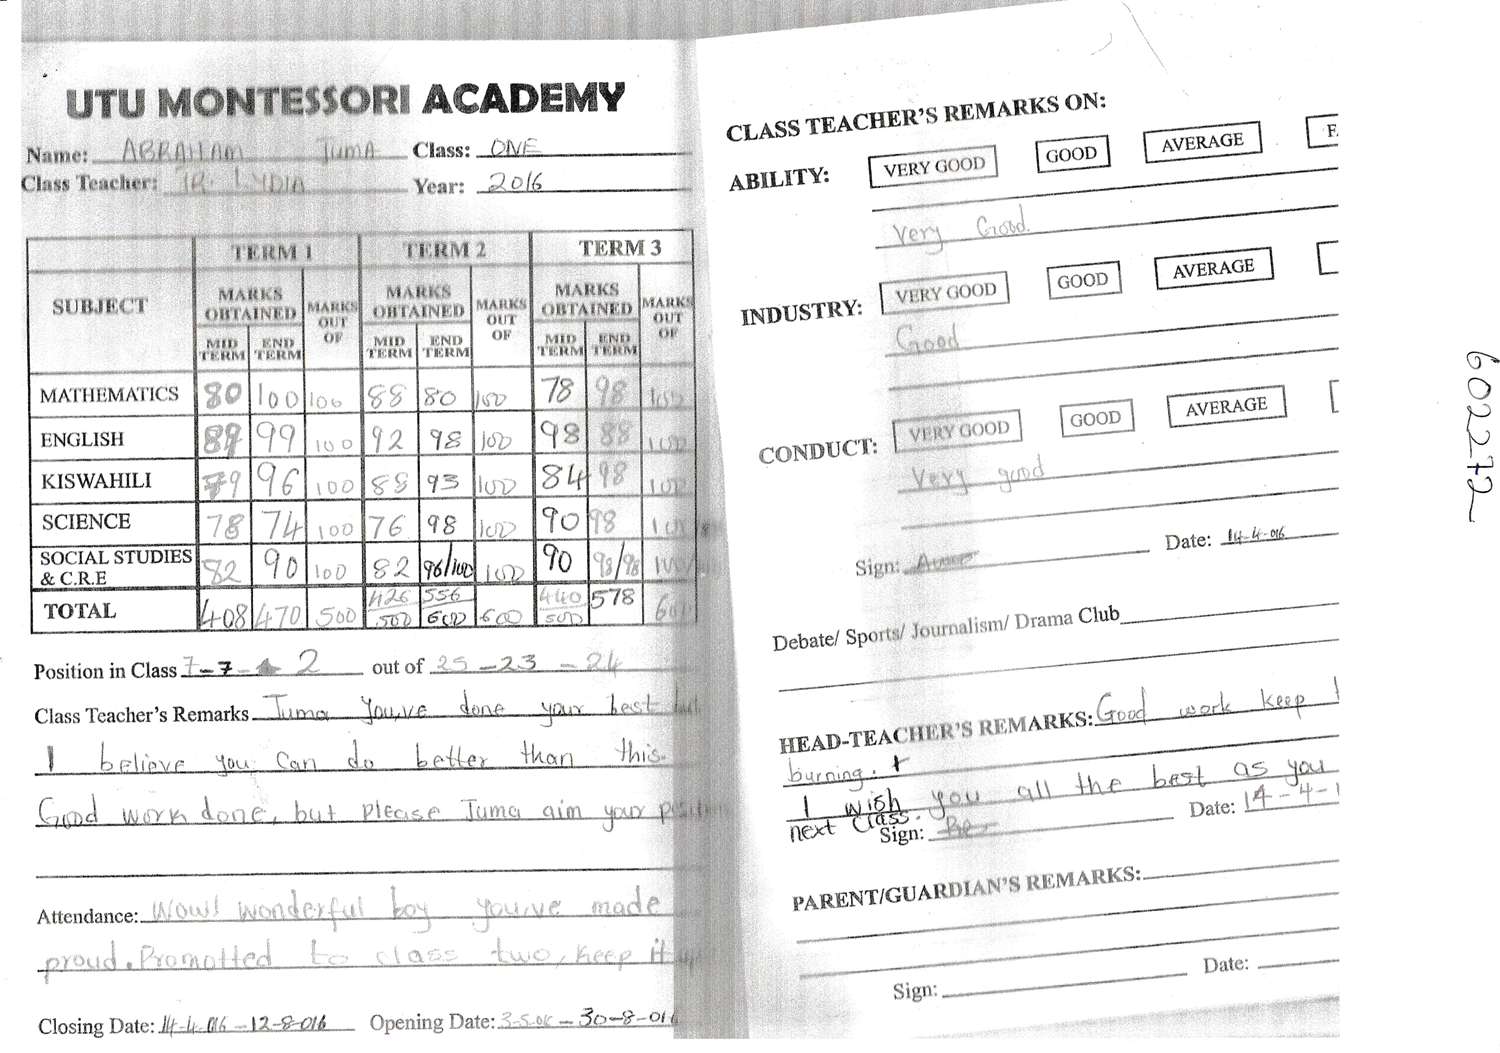 UTU MONTESSORI ACADEMY
Name: ABRAHAM JUMA Class: ONE
Class Teacher: TR. LYDIA Year: 2016
TERM 1 TERM 2 TERM 3
SUBJECT MARKS OBTAINED MARKS OUT OF MARKS OBTAINED MARKS OUT OF MARKS OBTAINED MARKS OUT OF
MID TERM END TERM MID TERM END TERM MID TERM END TERM
MATHEMATICS 80 100 100 88 80 100 78 98 100
ENGLISH 89 99 100 92 98 100 98 88 100
KISWAHILI 79 96 100 88 93 100 84 98 100
SCIENCE 78 74 100 76 98 100 90 98 100
SOCIAL STUDIES & C.R.E 82 90 100 82 96/100 100 90 98/98 100
TOTAL 408 470 500 426/500 556/600 600 440/500 578 600
Position in Class 7-7- 2 out of 25-23-24
Class Teacher's Remarks Juma You,ve done your best but
I believe you can do better than this.
Good work done, but please Juma aim your
Attendance: Wow! wonderful boy you,ve made
proud. Promotted to class two, keep it
Closing Date: 14-4-016-12-8-016 Opening Date: 3-5-016-30-8-016
CLASS TEACHER'S REMARKS ON:
ABILITY: VERY GOOD GOOD AVERAGE
Very Good.
INDUSTRY: VERY GOOD GOOD AVERAGE
Good
CONDUCT: VERY GOOD GOOD AVERAGE
Very good
Sign: Date: 14-4-016
Debate/ Sports/ Journalism/ Drama Club
HEAD-TEACHER'S REMARKS: Good work keep
burning.
I wish you all the best as you
next class.
Sign: Date: 14-4-1
PARENT/GUARDIAN'S REMARKS:
Sign: Date:
602272